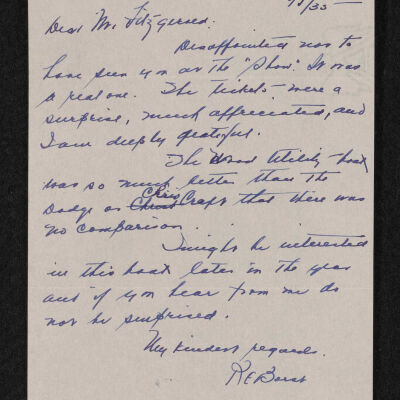 Dear Mr. Fitzgerald:
Disappointed not to
have seen you at the "Show". It was
a real one. The tickets were a
surprise, much appreciated, and
I am deeply grateful.
The Wood Utility boat
was so much better than the
Dodge or Chris Craft that there was
no comparison.
I might be interested
in this boat later in the year
and if you hear from me do
not be surprised.
My kindest regards.
R E Borst